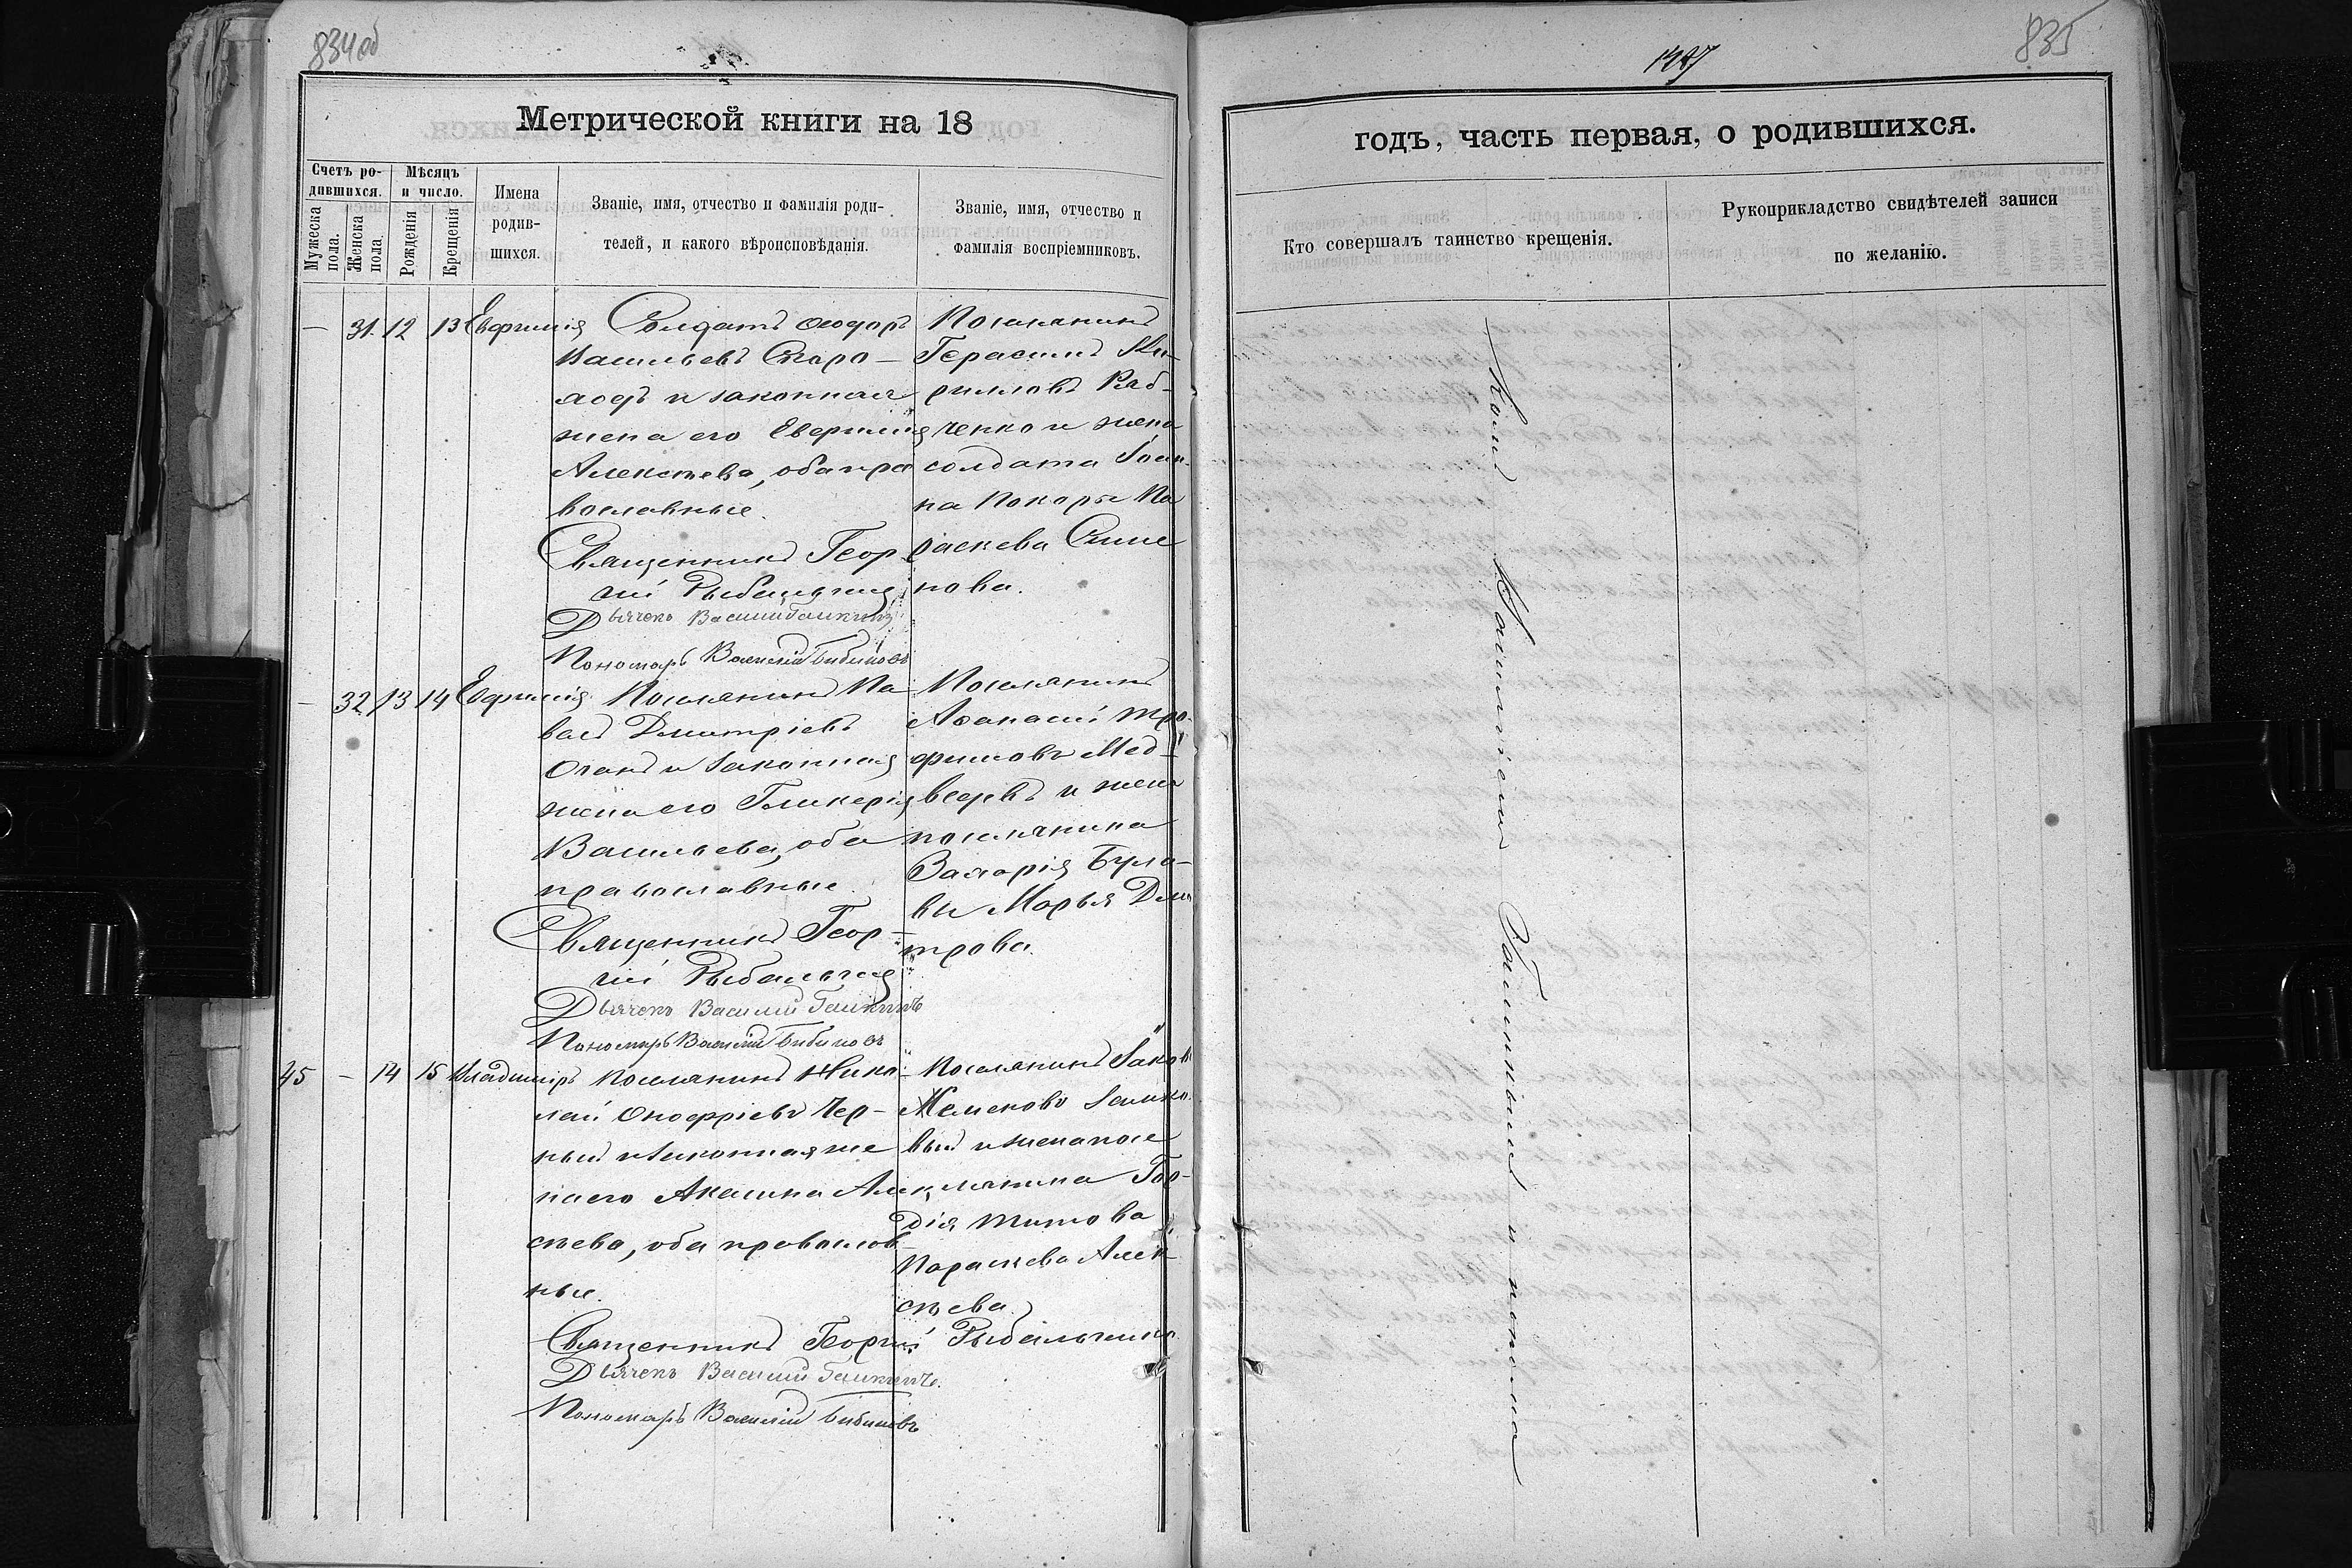 834об
Метрической книги на 18
Счетъ ро-
дившихся.
Мѣсяцъ
и число.
Мужеска
пола.
Женска
пола.
Рожденія
Крещенія
Имена
родив-
шихся.
Званіе, имя, отчество и фамилія роди-
телей, и какого вѣроисповѣданія.
Званіе, имя, отчество и
фамилія воспріемниковъ.
— 31. 12 13 Евфимія
Солдатъ Ѳеодоръ
Васильевъ Скоро-
ходъ и законная
жена его Евфимія
Алексѣева, оба пра
вославные.
Священникъ Геор-
гій
Дьячекъ Василій
Пономарь Василій Бибиковъ
Поселянинъ
Герасимъ Ки-
рилловъ Ряб-
ченко и жена
солдата Іоан-
на Покоры Па
раскева Симе
нова.
— 32 13 14 Евфимія
Поселянинъ Па
велъ Дмитріевъ
и законная
жена его Гликерія
Васильева, оба
православные.
Священникъ Геор-
гій
Дьячекъ Василій
Пономарь Василій Бибиковъ
Поселянинъ
Аѳанасій Тро-
фимовъ Мед-
ведевъ и жена
поселянина
Захарія Була-
вы Марья Дми
трова.
45 — 14 15 Владиміръ
Поселянинъ Нико-
лай Онофріевъ Чер-
ный и законная же
на его Акилина Алек
сѣева, оба православ-
ные.
Священникъ Георгій
Дьячекъ Василій
Пономарь Василій Бибиковъ
Поселянинъ Іаковъ
и жена посе
лянина Гор-
дія Титова
Параскева Алек
сѣева.
835
годъ, часть первая, о родившихся.
Кто совершалъ таинство крещенія.
Рукоприкладство свидѣтелей записи
по желанію.